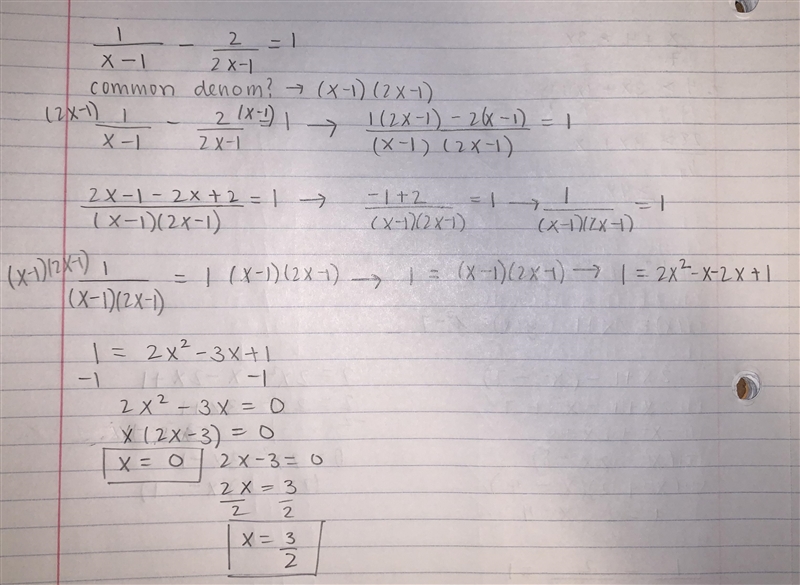 1/(x-1) - 2/(2x-1) = 1
common denom? → (x-1)(2x-1)
(2x-1) 1/(x-1) - 2(x-1)/(2x-1) = 1 → (1(2x-1) - 2(x-1))/((x-1)(2x-1)) = 1
(2x-1-2x+2)/((x-1)(2x-1)) = 1 → (-1+2)/((x-1)(2x-1)) = 1 → 1/((x-1)(2x-1)) = 1
(x-1)(2x-1) 1/((x-1)(2x-1)) = 1 (x-1)(2x-1) → 1 = (x-1)(2x-1) → 1 = 2x²-x-2x+1
1 = 2x²-3x+1
-1 -1
2x²-3x = 0
x(2x-3) = 0
x = 0 2x-3 = 0
2x/2 = 3/2
x = 3/2